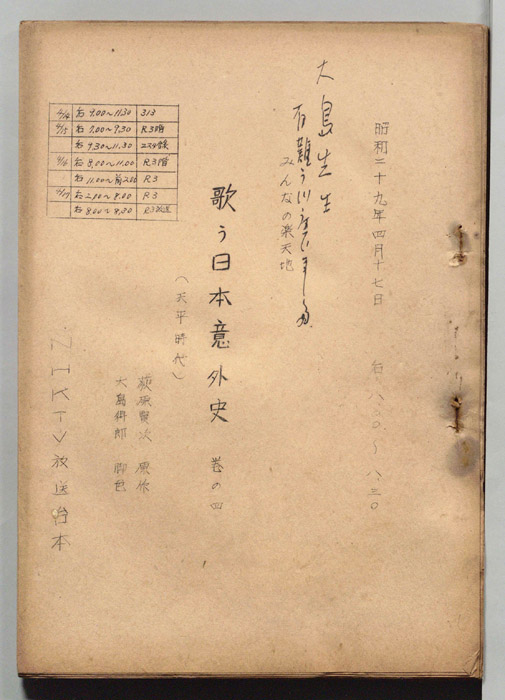 昭和二十九年四月十七日 后八.〇〇〜八.三〇
大島先生
有難うございました
みんなの楽天地
歌う日本意外史 巻の四
(天平時代)
荻原賢次 原作
大島郷郎 脚色
NHKTV放送台本
4/14 后 9.00〜11.30 313
4/15 后 7.00〜9.30 R3階
后 9.30〜11.30
4/16 后 8.00〜11.00 R3階
后 11.00〜前2.00 R3
4/17 后 2.00〜8.00 R3
后 8.00〜8.30 R3放送